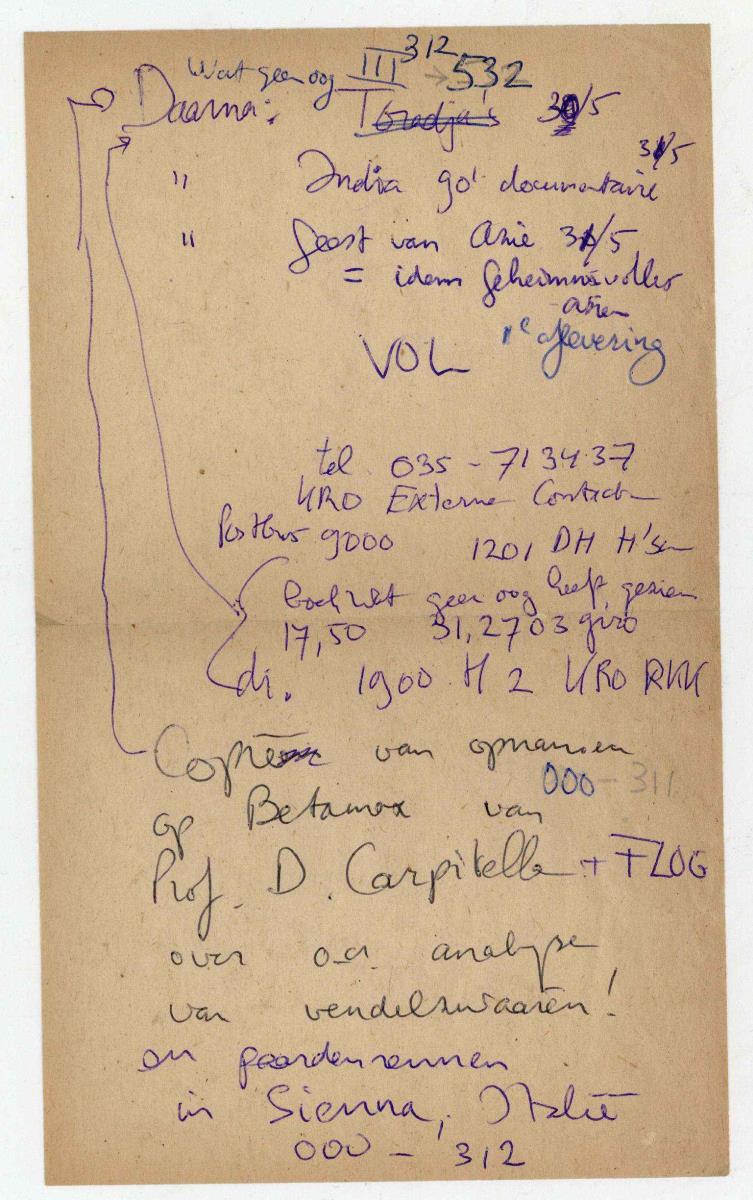 Wat geen oog III 312 → 532
Daarna: Toradja's 30/5
" India 90' documentaire 31/5
" Geest van Azie 31/5
= idem Geheimnisvolles
Asien
1e aflevering
VOL
tel. 035-713437
KRO Externe Contacten
Postbus 9000 1201 DH H'sum
boek Wat geen oog heeft gezien
17,50 31,2703 giro
di. 1900 H 2 KRO RKK
Copie van opnamen
000-311
op Betamax van
Prof. D. Carpitella + FLOG
over o.a. analyse
van vendelzwaaien!
en paardenrennen
in Sienna, Italië
000 - 312